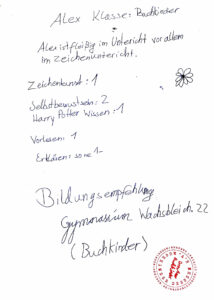 Alex Klasse: Buchkinder
Alex ist fleißig im Unterricht vor allem
im Zeichenunterricht.
Zeichenkunst: 1
Selbstbewustsein: 2
Harry Potter Wissen: 1
Vorlesen: 1
Erklären: so ne 1-
Bildungsempfehlung
Gymnasium Wachsbleich 22
(Buchkinder)